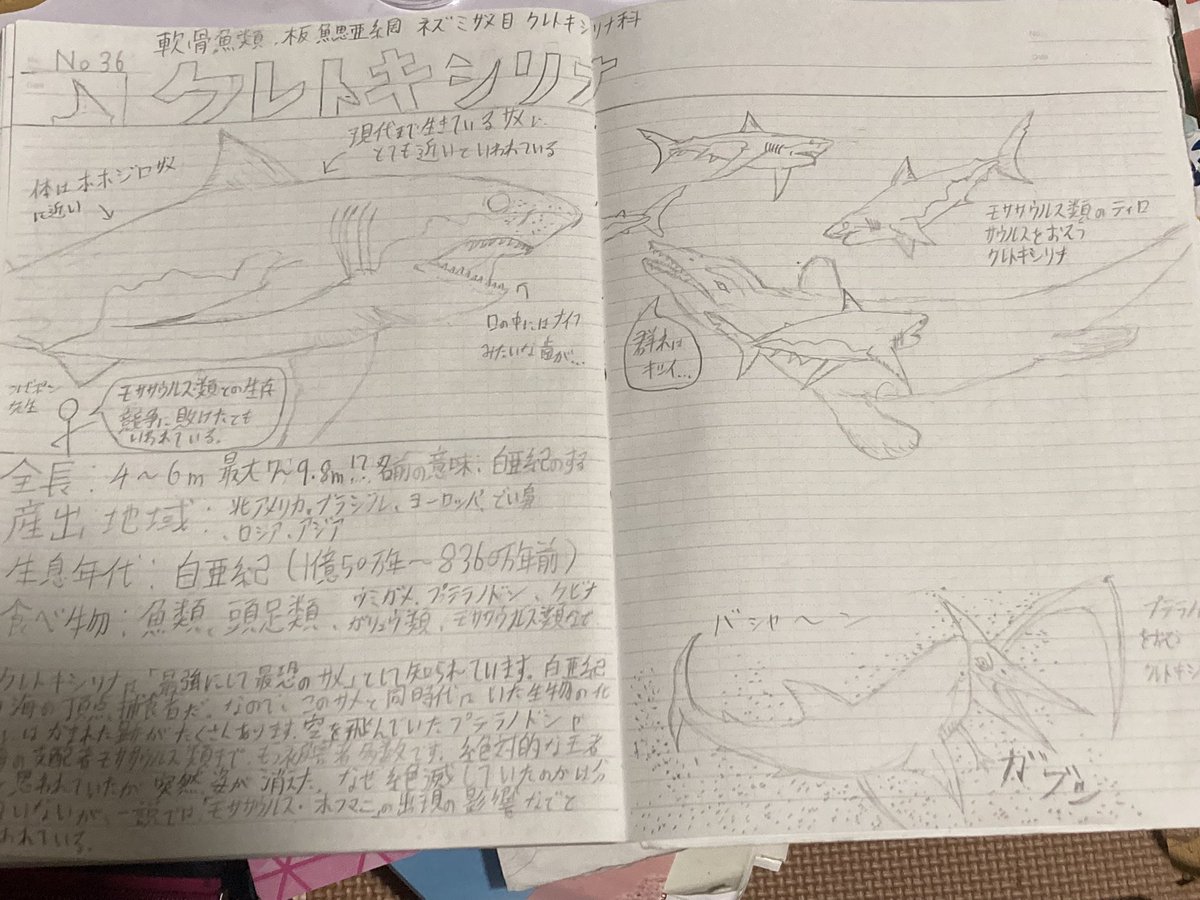 軟骨魚類、板鰓亜綱 ネズミザメ目 クレトキシリナ科
No 36
クレトキシリナ
現代まで生きているサメに
とても近いといわれている
体はホホジロザメ
に近い
口の中にはナイフ
みたいな歯が…
先生
モササウルス類との生存
競争に敗けたとも
いわれている。
全長:4~6m 最大7~9.8m!? 名前の意味:白亜紀の
産出地域:北アメリカ、ブラジル、ヨーロッパ、
、ロシア、アジア
生息年代:白亜紀(1億50万年~8360万年前)
食べ物:魚類、頭足類、ウミガメ、プテラノドン、クビナ
ガリュウ類、モササウルス類など
クレトキシリナは「最強にして最恐のサメ」として知られています。白亜紀
海の頂点捕食者だ。なので、このサメと同時代にいた生物の化
はかまれた跡がたくさんあります。空を飛んでいたプテラノドンや
の支配者モササウルス類まで もう被害者多数です。絶対的な王者
思われていたが 突然姿が消えた。なぜ絶滅していたのかは分
ていないが、一説では「モササウルス・ホフマニ」の出現の影響などと
われている。
モササウルス類のティロ
サウルスをおそう
クレトキシリナ
群れは
キツイ…
バシャ~ン
プテラノ
をおそう
クレトキシ
ガブッ